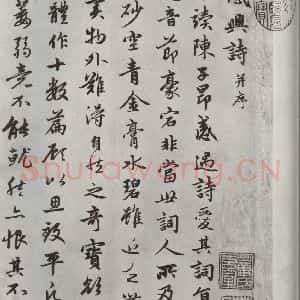 感興詩 并序
讀陳子昂感遇詩愛其詞
音節豪宕非當世詞人所及
砂空青金膏水碧雖近乏世
物外難得自然之奇寶欲
體作十數篇顧以思致平凡
萎弱竟不能就然亦恨其不
Shufawang.CN